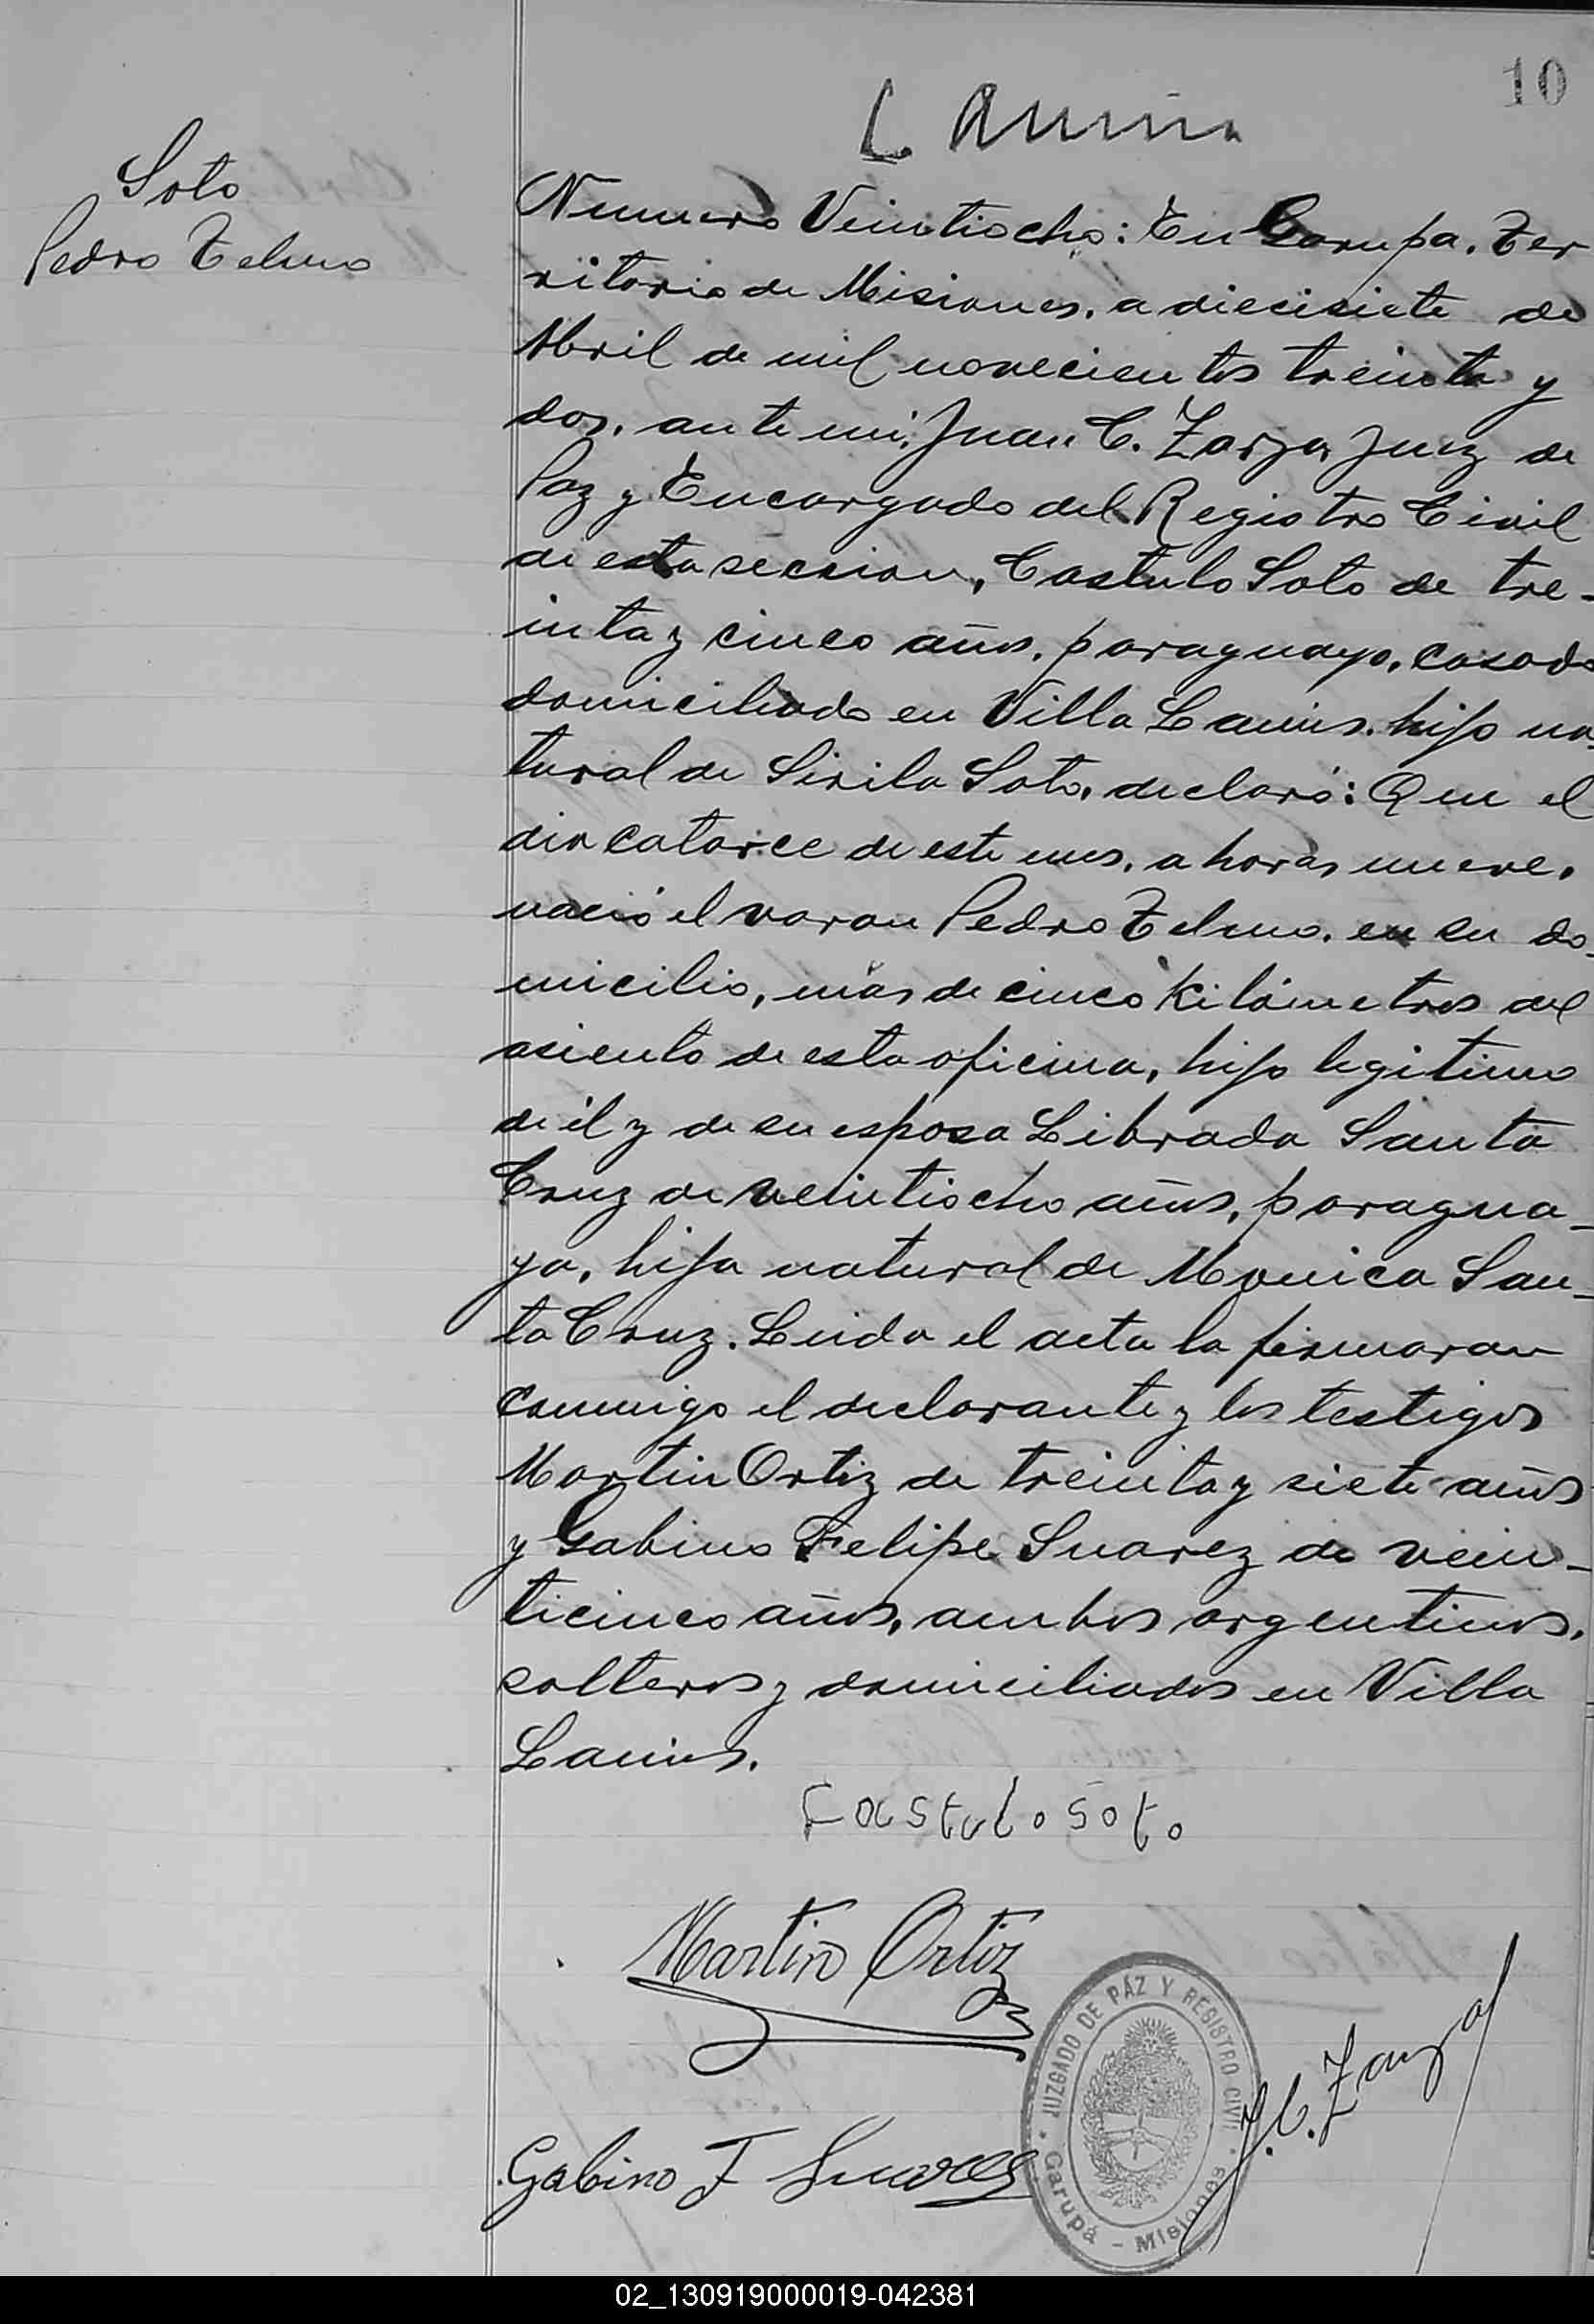 10
Lanús
Soto
Pedro Telmo
Numero Veintiocho: En Garupa. Ter
ritorio de Misiones. a diecisiete de
Abril de mil novecientos treinta y
dos. ante mi. Juan C. Zarza Juez de
Paz y Encargado del Registro Civil
de esta seccion, Castulo Soto de tre-
inta y cinco años. paraguayo, casado
domiciliado en Villa Lanus. hijo na
tural de Sirila Soto, declaró: Que el
dia catorce de este mes. a horas nueve.
nació el varon Pedro Telmo. en su do-
micilio, más de cinco Kilómetros del
asiento de esta oficina, hijo legitimo
de él y de su esposa Librada Santa
Cruz de veintiocho años, paragua-
ya, hija natural de Monica San-
ta Cruz. Leida el acta la firmaran
conmigo el declarante y los testigos
Martin Ortiz de treinta y siete años
y Gabino Felipe Suarez de vein-
ticinco años, ambos argentinos.
solteros y domiciliados en Villa
Lanus.
Castulo Soto
Martin Ortiz
JUZGADO DE PAZ Y REGISTRO CIVIL
Garupá - Misiones
J. C. Zarza
Gabino F Suarez
02_130919000019-042381